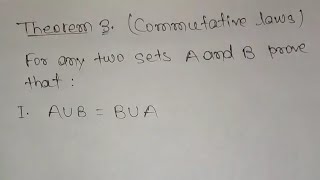 Theorem 3. (Commutative laws)
For any two sets A and B prove
that :
I. A∪B = B∪A